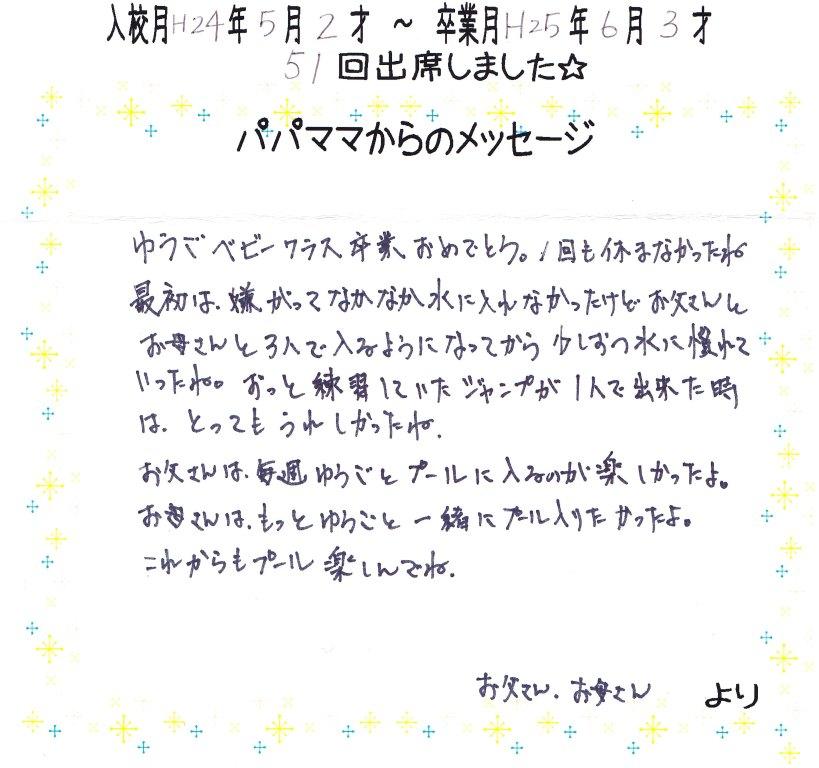 入校月H24年5月2才 ～ 卒業月H25年6月3才
51回出席しました☆
パパママからのメッセージ
ゆうごベビークラス卒業おめでとう。1回も休まなかったね
最初は、嫌がってなかなか水に入れなかったけどお父さんと
お母さんと3人で入るようになってから少しずつ水に慣れて
いったね。ずっと練習していたジャンプが1人で出来た時
は、とってもうれしかったね。
お父さんは、毎週ゆうごとプールに入るのが楽しかったよ。
お母さんは、もっとゆうごと一緒にプール入りたかったよ。
これからもプール楽しんでね。
お父さん、お母さん より